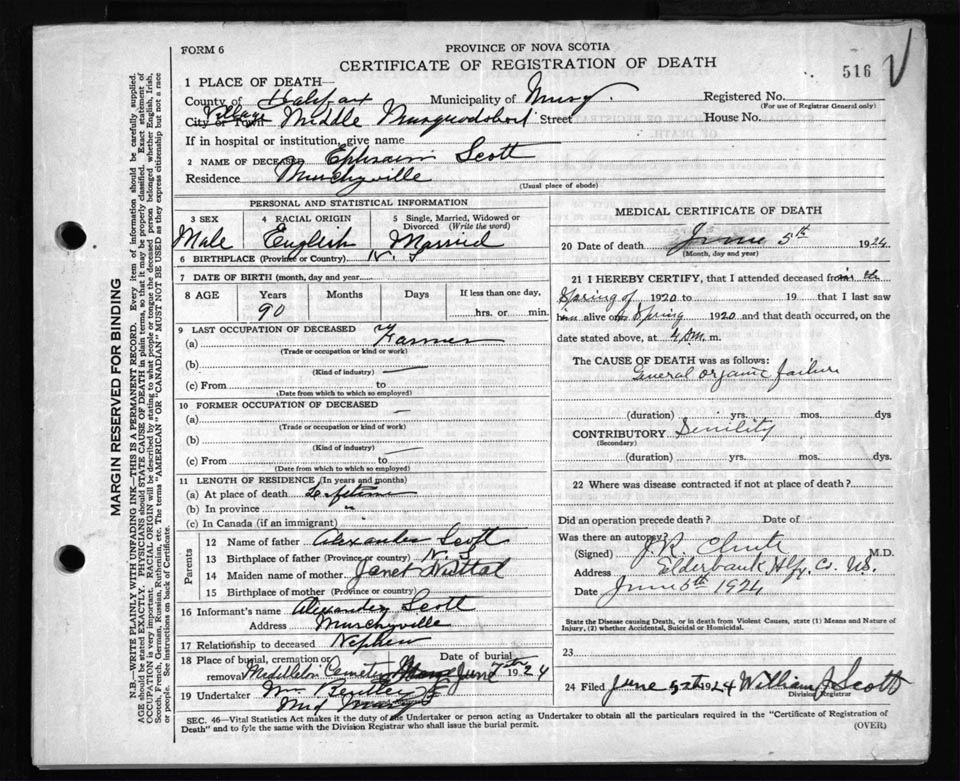 FORM 6
PROVINCE OF NOVA SCOTIA
CERTIFICATE OF REGISTRATION OF DEATH
516
1 PLACE OF DEATH—
County of Halifax Municipality of Musq. Registered No.
(For use of Registrar General only)
Village
City or Town Middle Musquodoboit Street House No.
If in hospital or institution, give name
2 NAME OF DECEASED Ephraim Scott
Residence Murchyville
(Usual place of abode)
PERSONAL AND STATISTICAL INFORMATION
3 SEX 4 RACIAL ORIGIN 5 Single, Married, Widowed or Divorced (Write the word)
Male English Married
6 BIRTHPLACE (Province or Country) N. S
7 DATE OF BIRTH (month, day and year)
8 AGE Years Months Days If less than one day,
90 hrs. or min.
9 LAST OCCUPATION OF DECEASED
(a) Farmer
(Trade or occupation or kind of work)
(b)
(Kind of industry)
(c) From to
(Date from which to which so employed)
10 FORMER OCCUPATION OF DECEASED
(a) —
(Trade or occupation or kind of work)
(b)
(Kind of industry)
(c) From to —
(Date from which to which so employed)
11 LENGTH OF RESIDENCE (In years and months)
(a) At place of death Lifetime
(b) In province "
(c) In Canada (if an immigrant)
Parents
12 Name of father Alexander Scott
13 Birthplace of father (Province or country) N. S
14 Maiden name of mother Janet
15 Birthplace of mother (Province or country)
16 Informant's name Alexander Scott
Address Murchyville
17 Relationship to deceased Nephew
18 Place of burial, cremation or removal Middleton Cemetery Date of burial June 7th 1924
19 Undertaker Wm
Mid Musq
MEDICAL CERTIFICATE OF DEATH
20 Date of death June 5th 1924
(Month, day and year)
21 I HEREBY CERTIFY, that I attended deceased from the
Spring of 1920 to 19 that I last saw
him alive on Spring 1920 and that death occurred, on the
date stated above, at 4 a.m. m.
The CAUSE OF DEATH was as follows:
General organic failure
(duration) yrs. mos. dys
CONTRIBUTORY Senility
(Secondary)
(duration) yrs. mos. dys.
22 Where was disease contracted if not at place of death?
Did an operation precede death? Date of
Was there an autopsy?
(Signed) J. R. Chute M.D.
Address Elderbank Hfx. Co. N.S.
Date June 5th 1924
State the Disease causing Death, or in death from Violent Causes, state (1) Means and Nature of Injury, (2) whether Accidental, Suicidal or Homicidal.
23
24 Filed June 5th 1924 William J Scott
Division Registrar
SEC. 46—Vital Statistics Act makes it the duty of the Undertaker or person acting as Undertaker to obtain all the particulars required in the "Certificate of Registration of
Death" and to fyle the same with the Division Registrar who shall issue the burial permit. (OVER)
MARGIN RESERVED FOR BINDING
N.B.—WRITE PLAINLY WITH UNFADING INK—THIS IS A PERMANENT RECORD. Every item of information should be carefully supplied.
AGE should be stated EXACTLY. PHYSICIANS should STATE CAUSE OF DEATH in plain terms, so that it may be properly classified. Exact statement of
OCCUPATION is very important. RACIAL ORIGIN will be described by stating to what people or tongue the deceased person belonged whether English, Irish,
Scotch, French, German, Russian, Ruthenian, etc. The terms "AMERICAN" OR "CANADIAN" MUST NOT BE USED as they express citizenship but not a race
or people. See instructions on back of Certificate.